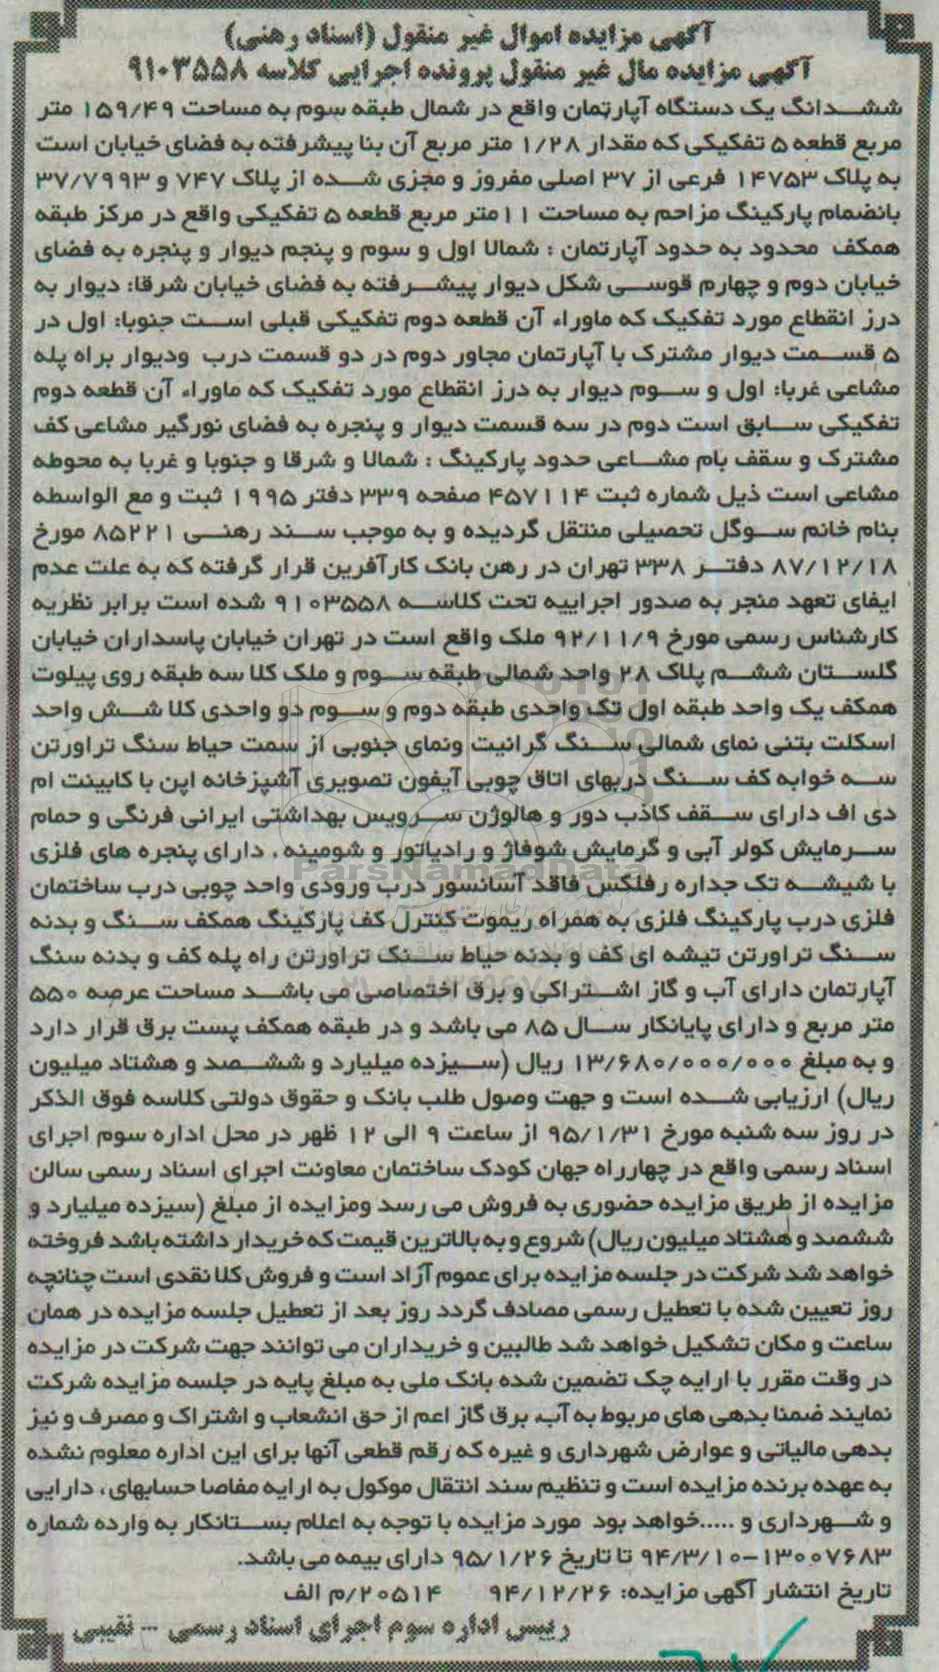 آگهی مزایده اموال غیر منقول (اسناد رهنی)
آگهی مزایده مال غیر منقول پرونده اجرایی کلاسه ۹۱۰۳۵۵۸
ششدانگ یک دستگاه آپارتمان واقع در شمال طبقه سوم به مساحت ۱۵۹/۴۹ متر
مربع قطعه ۵ تفکیکی که مقدار ۱/۲۸ متر مربع آن بنا پیشرفته به فضای خیابان است
به پلاک ۱۴۷۵۳ فرعی از ۳۷ اصلی مفروز و مجزی شده از پلاک ۷۴۷ و ۳۷/۷۹۹۳
بانضمام پارکینگ مزاحم به مساحت ۱۱متر مربع قطعه ۵ تفکیکی واقع در مرکز طبقه
همکف محدود به حدود آپارتمان : شمالا اول و سوم و پنجم دیوار و پنجره به فضای
خیابان دوم و چهارم قوسی شکل دیوار پیشرفته به فضای خیابان شرقا: دیوار به
درز انقطاع مورد تفکیک که ماوراء آن قطعه دوم تفکیکی قبلی است جنوبا: اول در
۵ قسمت دیوار مشترک با آپارتمان مجاور دوم در دو قسمت درب ودیوار براه پله
مشاعی غربا: اول و سوم دیوار به درز انقطاع مورد تفکیک که ماوراء آن قطعه دوم
تفکیکی سابق است دوم در سه قسمت دیوار و پنجره به فضای نورگیر مشاعی کف
مشترک و سقف بام مشاعی حدود پارکینگ : شمالا و شرقا و جنوبا و غربا به محوطه
مشاعی است ذیل شماره ثبت ۴۵۷۱۱۴ صفحه ۳۳۹ دفتر ۱۹۹۵ ثبت و مع الواسطه
بنام خانم سوگل تحصیلی منتقل گردیده و به موجب سند رهنی ۸۵۲۲۱ مورخ
۸۷/۱۲/۱۸ دفتر ۳۳۸ تهران در رهن بانک کارآفرین قرار گرفته که به علت عدم
ایفای تعهد منجر به صدور اجراییه تحت کلاسه ۹۱۰۳۵۵۸ شده است برابر نظریه
کارشناس رسمی مورخ ۹۲/۱۱/۹ ملک واقع است در تهران خیابان پاسداران خیابان
گلستان ششم پلاک ۲۸ واحد شمالی طبقه سوم و ملک کلا سه طبقه روی پیلوت
همکف یک واحد طبقه اول تک واحدی طبقه دوم و سوم دو واحدی کلا شش واحد
اسکلت بتنی نمای شمالی سنگ گرانیت ونمای جنوبی از سمت حیاط سنگ تراورتن
سه خوابه کف سنگ دربهای اتاق چوبی آیفون تصویری آشپزخانه اپن با کابینت ام
دی اف دارای سقف کاذب دور و هالوژن سرویس بهداشتی ایرانی فرنگی و حمام
سرمایش کولر آبی و گرمایش شوفاژ و رادیاتور و شومینه، دارای پنجره های فلزی
با شیشه تک جداره رفلکس فاقد آسانسور درب ورودی واحد چوبی درب ساختمان
فلزی درب پارکینگ فلزی به همراه ریموت کنترل کف پارکینگ همکف سنگ و بدنه
سنگ تراورتن تیشه ای کف و بدنه حیاط سنک تراورتن راه پله کف و بدنه سنگ
آپارتمان دارای آب و گاز اشتراکی و برق اختصاصی می باشد مساحت عرصه ۵۵۰
متر مربع و دارای پایانکار سال ۸۵ می باشد و در طبقه همکف پست برق قرار دارد
و به مبلغ ۱۳/۶۸۰/۰۰۰/۰۰۰ ریال (سیزده میلیارد و ششصد و هشتاد میلیون
ریال) ارزیابی شده است و جهت وصول طلب بانک و حقوق دولتی کلاسه فوق الذکر
در روز سه شنبه مورخ ۹۵/۱/۳۱ از ساعت ۹ الی ۱۲ ظهر در محل اداره سوم اجرای
اسناد رسمی واقع در چهارراه جهان کودک ساختمان معاونت اجرای اسناد رسمی سالن
مزایده از طریق مزایده حضوری به فروش می رسد ومزایده از مبلغ (سیزده میلیارد و
ششصد و هشتاد میلیون ریال) شروع و به بالاترین قیمت که خریدار داشته باشد فروخته
خواهد شد شرکت در جلسه مزایده برای عموم آزاد است و فروش کلا نقدی است چنانچه
روز تعیین شده با تعطیل رسمی مصادف گردد روز بعد از تعطیل جلسه مزایده در همان
ساعت و مکان تشکیل خواهد شد طالبین و خریداران می توانند جهت شرکت در مزایده
در وقت مقرر با ارایه چک تضمین شده بانک ملی به مبلغ پایه در جلسه مزایده شرکت
نمایند ضمنا بدهی های مربوط به آب، برق گاز اعم از حق انشعاب و اشتراک و مصرف و نیز
بدهی مالیاتی و عوارض شهرداری و غیره که رقم قطعی آنها برای این اداره معلوم نشده
به عهده برنده مزایده است و تنظیم سند انتقال موکول به ارایه مفاصا حسابهای، دارایی
و شهرداری و .....خواهد بود مورد مزایده با توجه به اعلام بستانکار به وارده شماره
۱۳۰۰۷۶۸۳-۹۴/۳/۱۰ تا تاریخ ۹۵/۱/۲۶ دارای بیمه می باشد.
تاریخ انتشار آگهی مزایده: ۹۴/۱۲/۲۶ ۲۰۵۱۴/م الف
رییس اداره سوم اجرای اسناد رسمی -- نقیبی
ParsNamadData